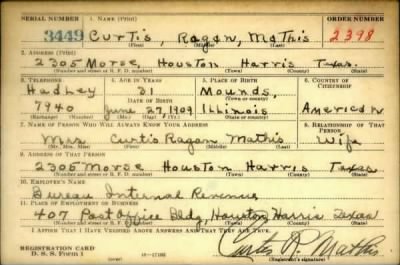 SERIAL NUMBER 1. NAME (Print) ORDER NUMBER
3449 Curtis, Ragan, Mathis 2398
(First) (Middle) (Last)
2. ADDRESS (Print)
2305 Morse, Houston Harris Texas.
(Number and street or R. F. D. number) (Town) (County) (State)
3. TELEPHONE 4. AGE IN YEARS 5. PLACE OF BIRTH 6. COUNTRY OF CITIZENSHIP
Hadley 31 Mounds,
DATE OF BIRTH (Town or county)
7940 June 27, 1909 Illinois American
(Exchange) (Number) (Mo.) (Day) (Yr.) (State or country)
7. NAME OF PERSON WHO WILL ALWAYS KNOW YOUR ADDRESS 8. RELATIONSHIP OF THAT PERSON
Mrs Curtis Ragan Mathis Wife
(Mr., Mrs., Miss) (First) (Middle) (Last)
9. ADDRESS OF THAT PERSON
2305 Morse Houston Harris Texas
(Number and street or R. F. D. number) (Town) (County) (State)
10. EMPLOYER'S NAME
Bureau Internal Revenue
11. PLACE OF EMPLOYMENT OR BUSINESS
407 Post Office Bldg, Houston Harris Texas
(Number and street or R. F. D. number) (Town) (County) (State)
I AFFIRM THAT I HAVE VERIFIED ABOVE ANSWERS AND THAT THEY ARE TRUE.
REGISTRATION CARD
D. S. S. FORM 1 Curtis R Mathis
(Registrant's signature)